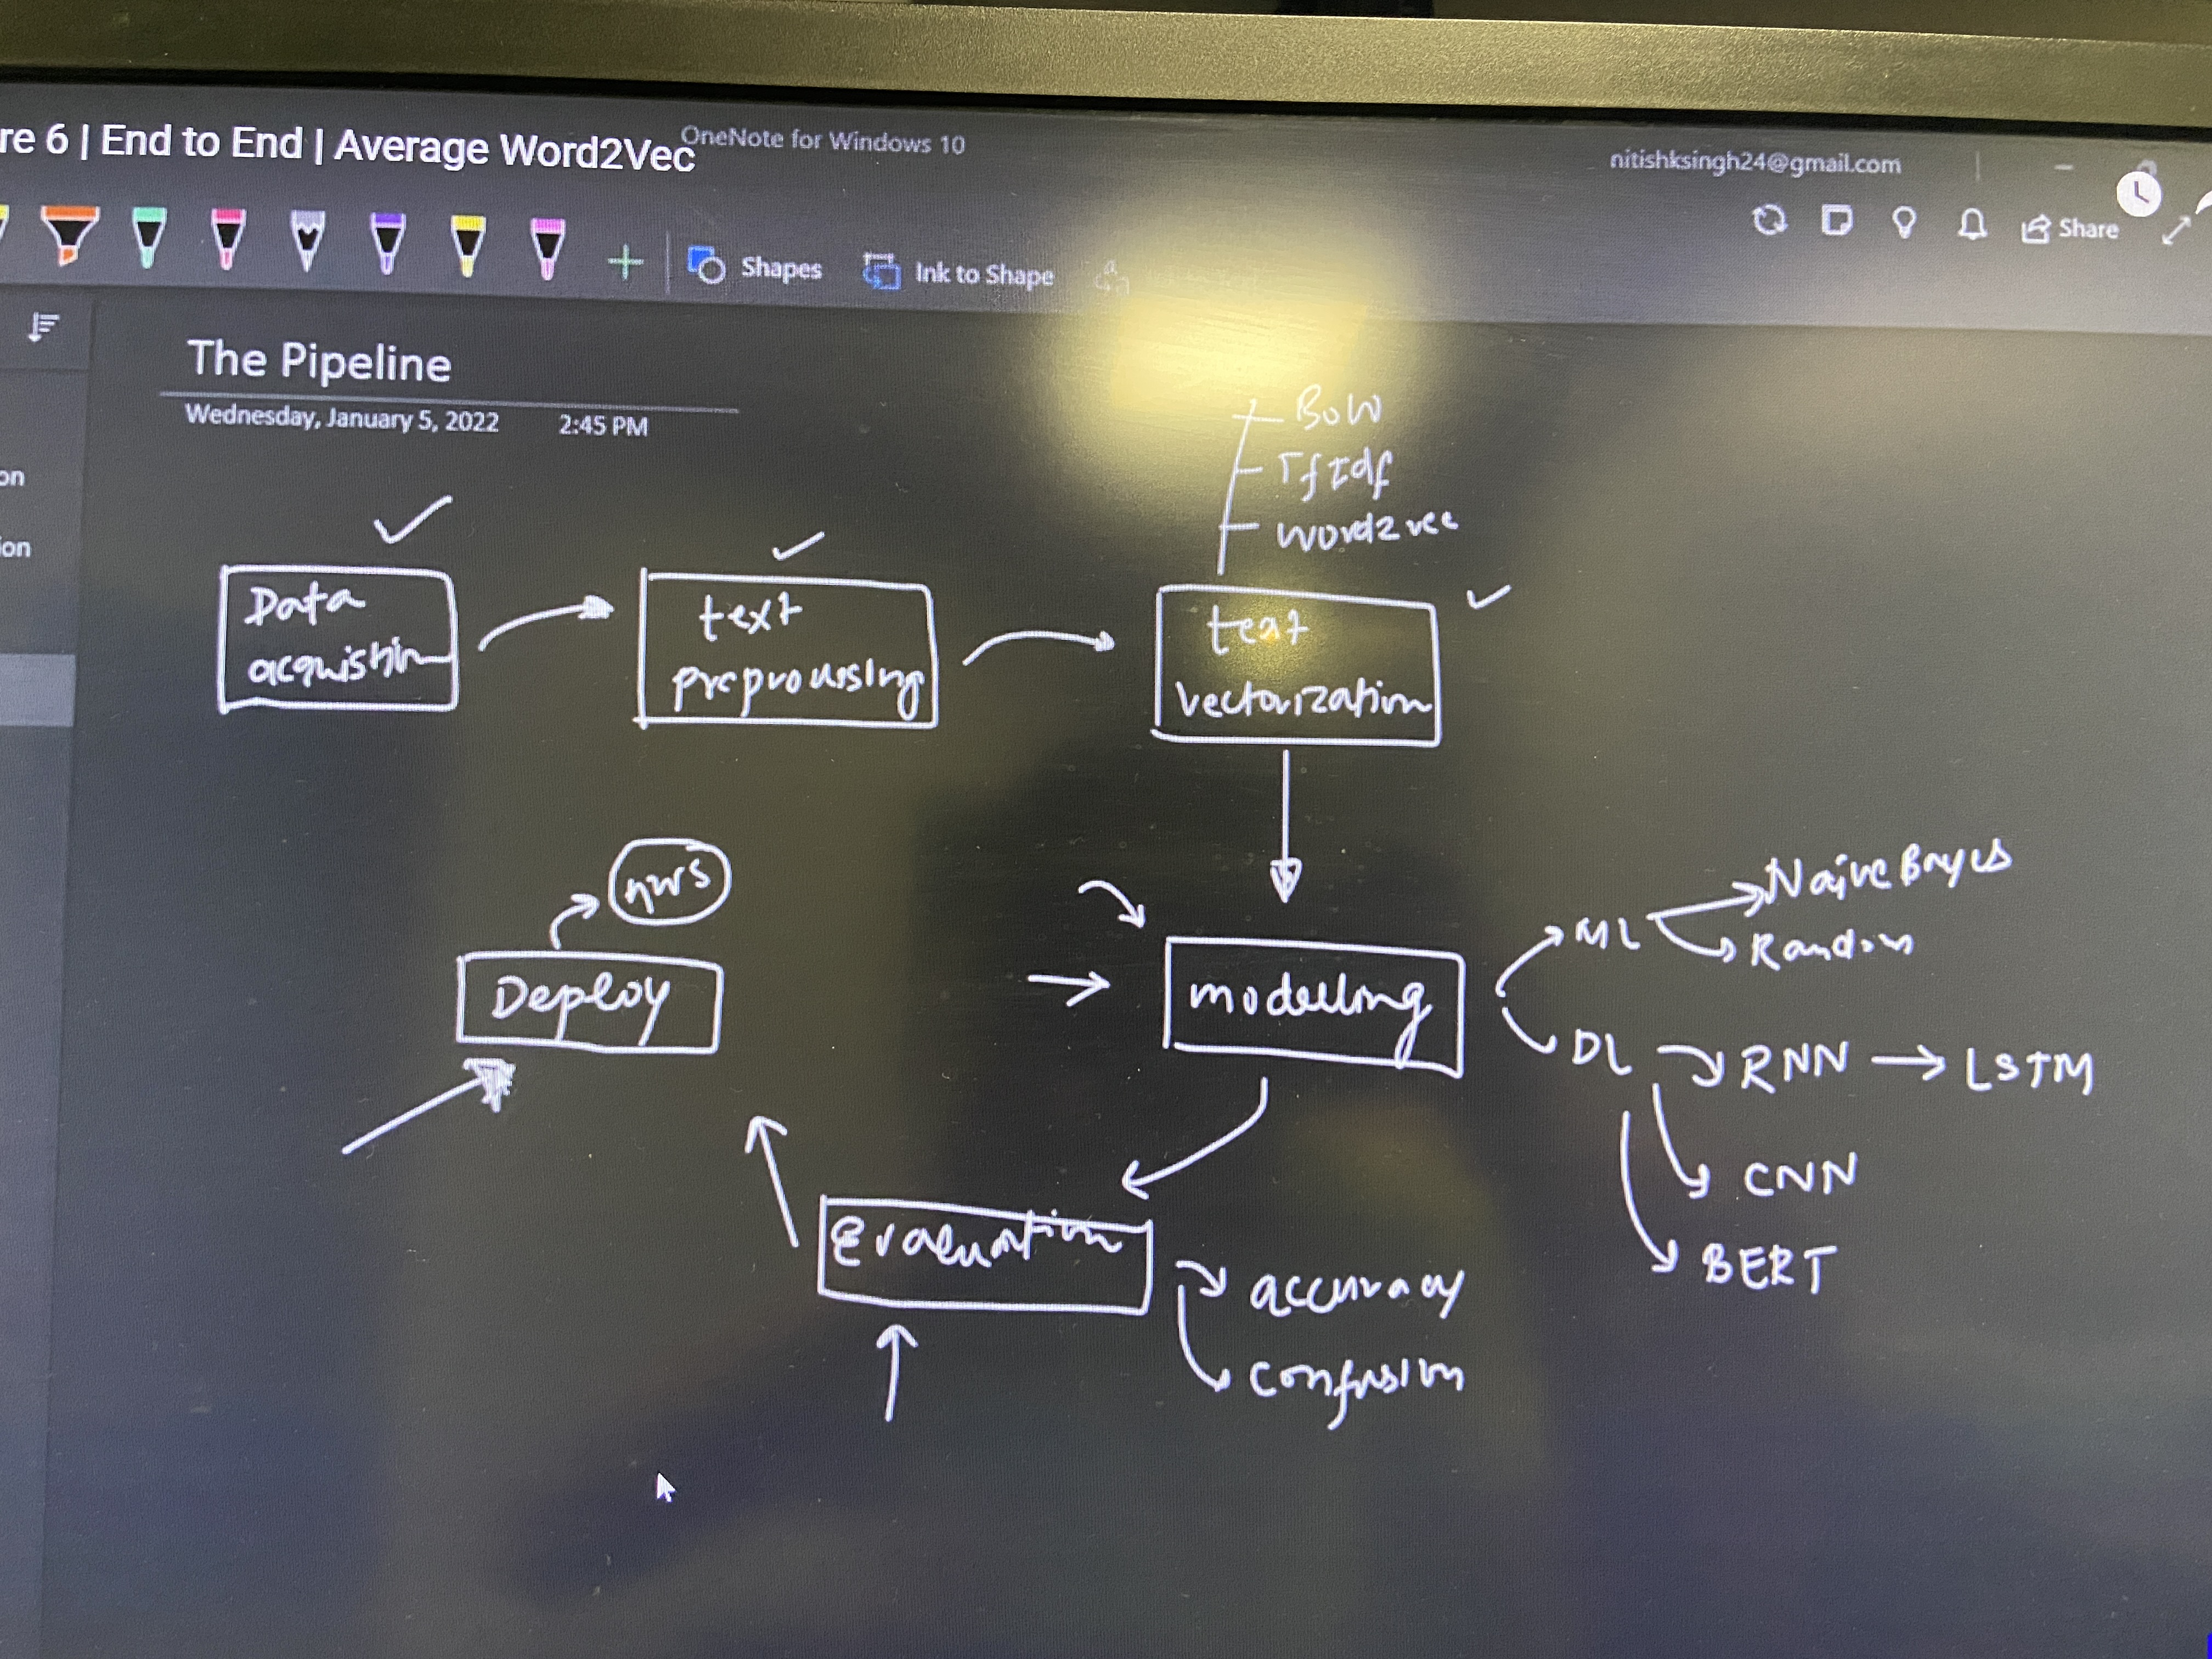 re 6 | End to End | Average Word2Vec
OneNote for Windows 10
nitishksingh24@gmail.com
Shapes
Ink to Shape
Share
The Pipeline
Wednesday, January 5, 2022 2:45 PM
on
ion
BOW
TfIdf
Word2vec
Data
acquisition
text
preprocessing
text
vectorization
Deploy
modelling
ML
Naive Bayes
Random
DL
RNN
LSTM
CNN
BERT
Evaluation
accuracy
confusion